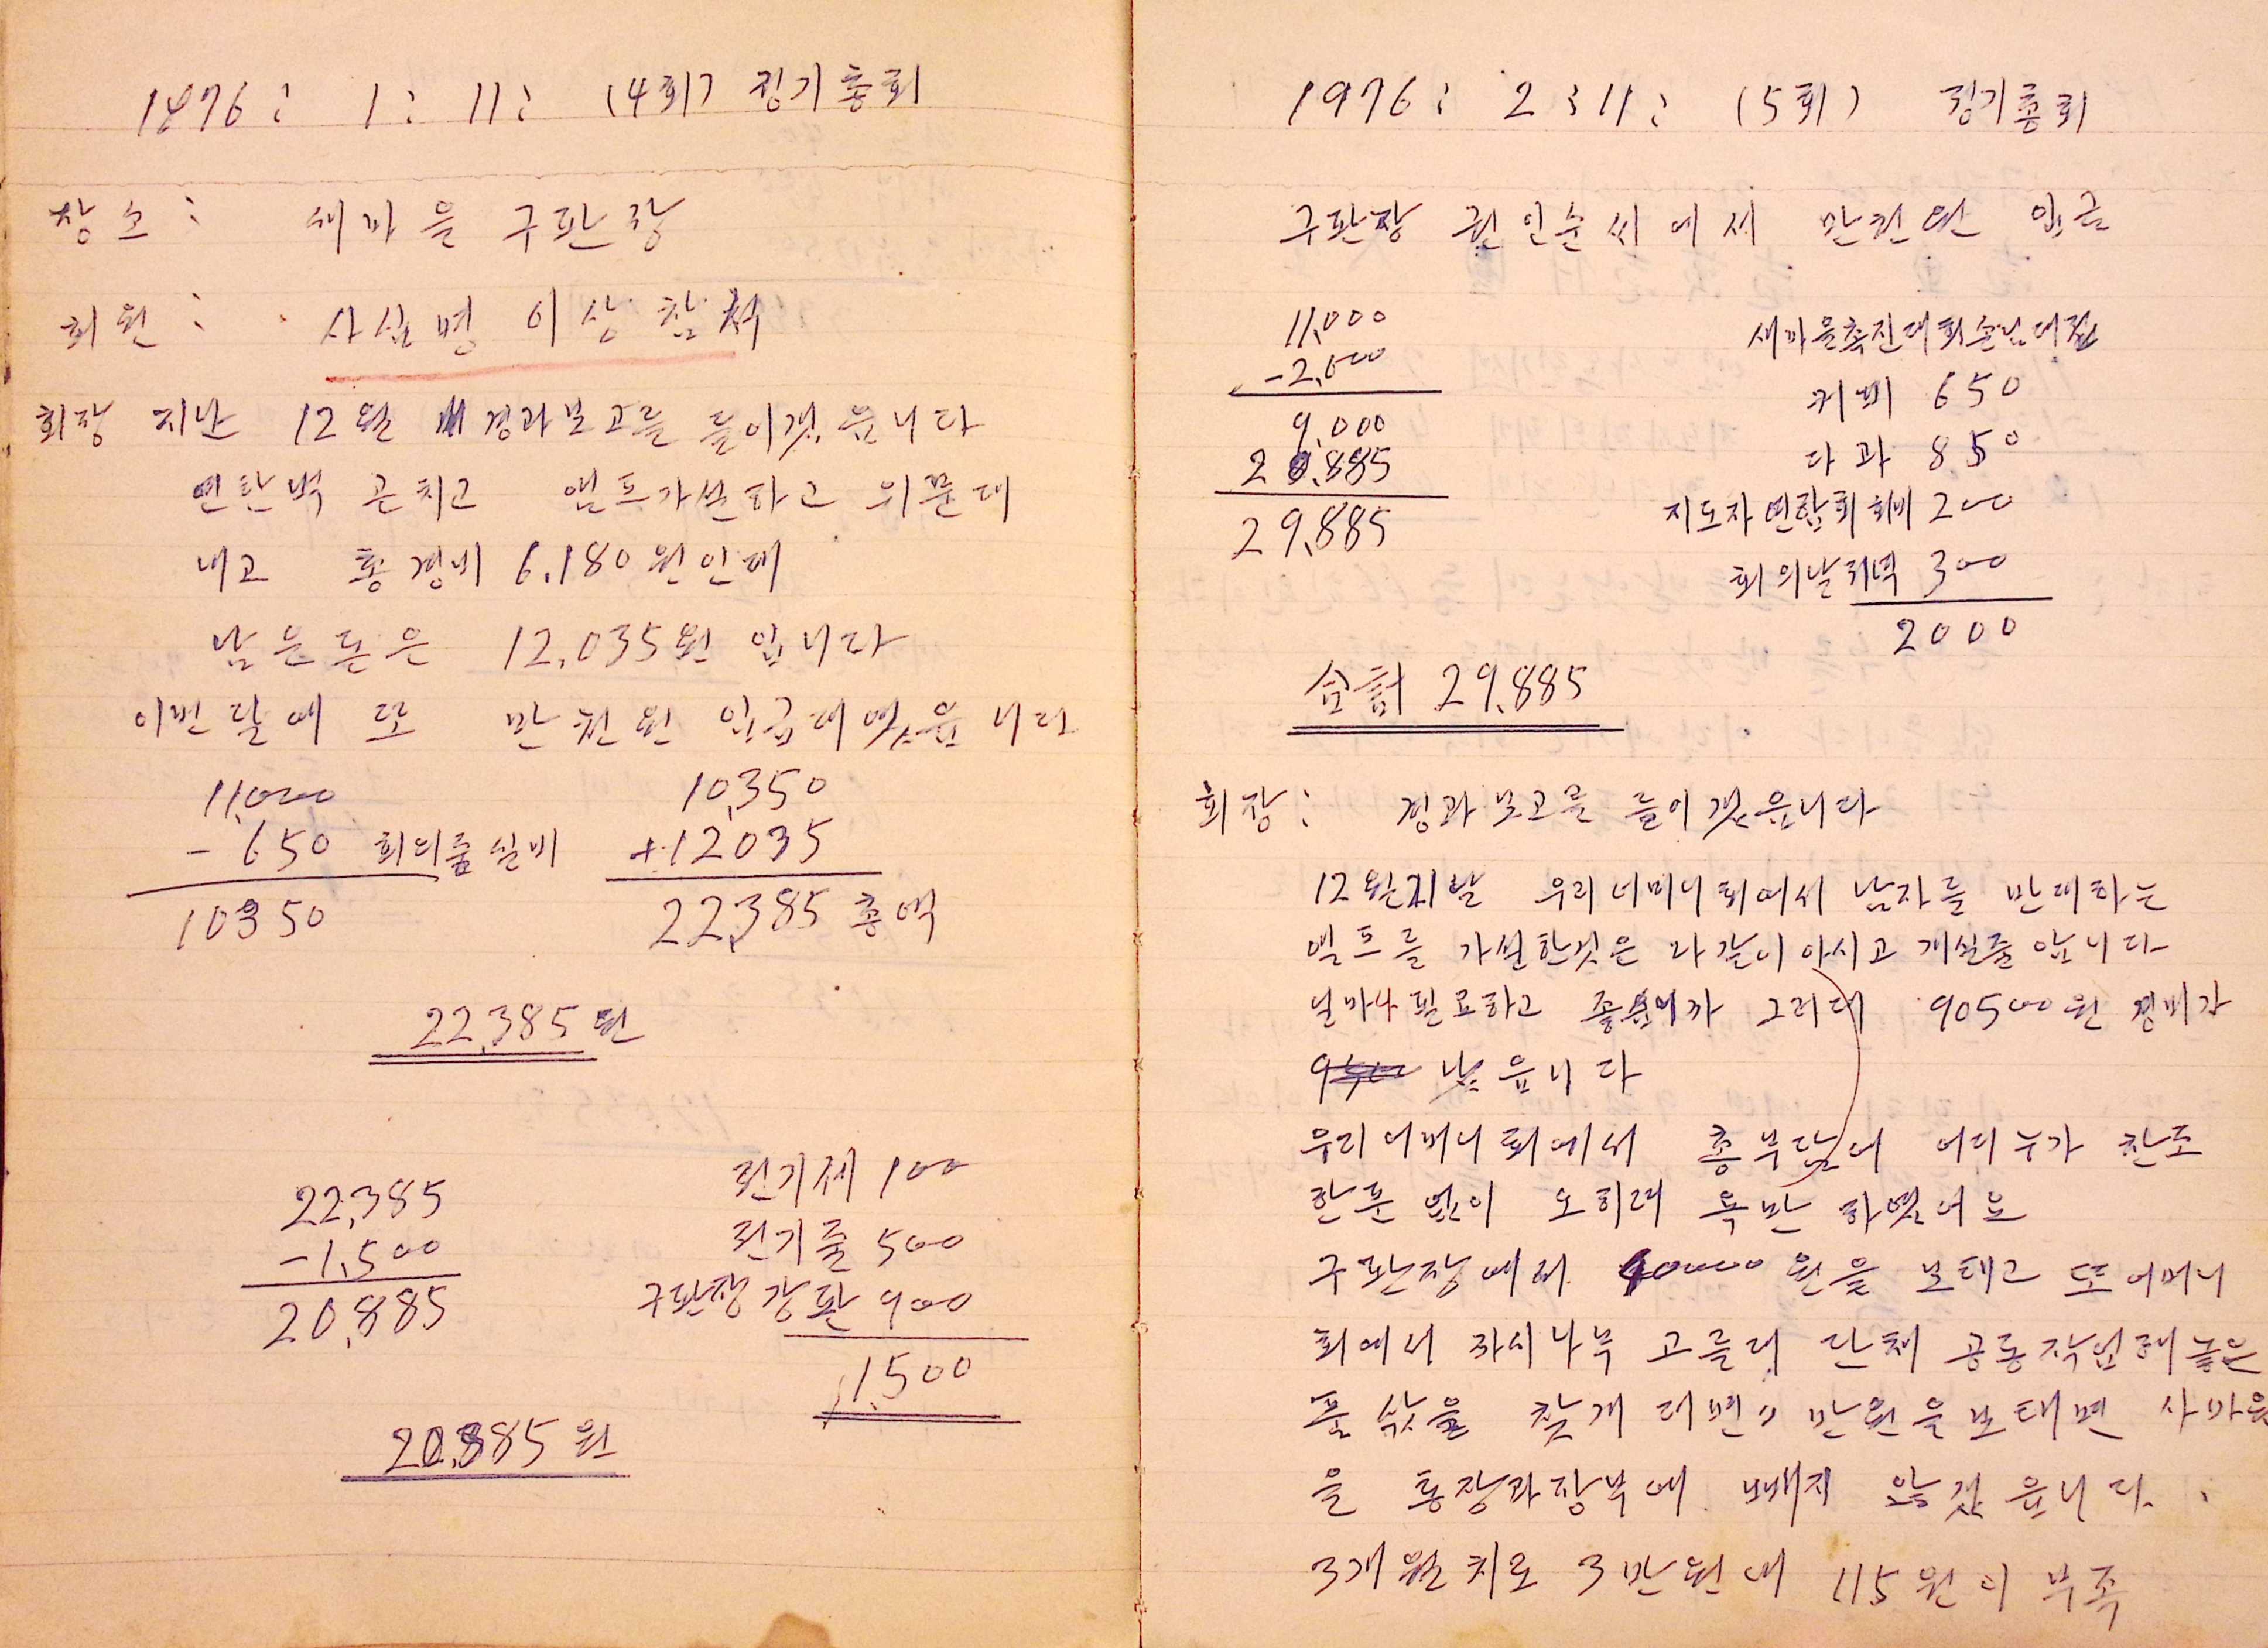 1976: 1: 11: (4회) 정기총회
장소: 새마을 구판장
회원: 사십명 이상 참석
회장 지난 12월 경과보고를 들이겟읍니다
연탄벽 곤치고 엠프가설하고 위문대
내고 총경비 6.180원인데
남은돈은 12.035원 입니다
이번달에 또 만천원 입금대엿읍니다
11,000
- 650 회의롬실비
10350
10,350
+12035
22,385 총액
22,385원
22,385
-1,500
20,885
전기세 100
전기줄 500
구판장 강판 900
1,500
20,885원
1976: 2: 11: (5회) 정기총회
구판장 권인순씨에서 만천원 입금
11,000
-2,000
9,000
20,885
29,885
새마을촉진대회손님대접
커피 650
다과 850
지도자연합회회비 200
회의날저녁 300
2000
合計 29,885
회장: 경과보고를 들이겟읍니다
12월21날 우리어머니회에서 남자를 반대하는
엠프를 가설한것은 다같이 아시고 게실줄 압니다
얼마나 필요하고 좋습니까 그러대 90500원 경비가
낫읍니다
우리어머니회에서 총부담에 어디누가 찬조
한푼 없이 오히려 욕만 하엿어요
구판장에서 40000원을 보태고 또 어머니
회에서 자시나무 고를대 단체 공동작업해놓은
품삯을 찾게 대면 만원을 보태면 사마을
을 통장과장부에 빼지 않겟읍니다.
3개월치로 3만원에 115원이 부족